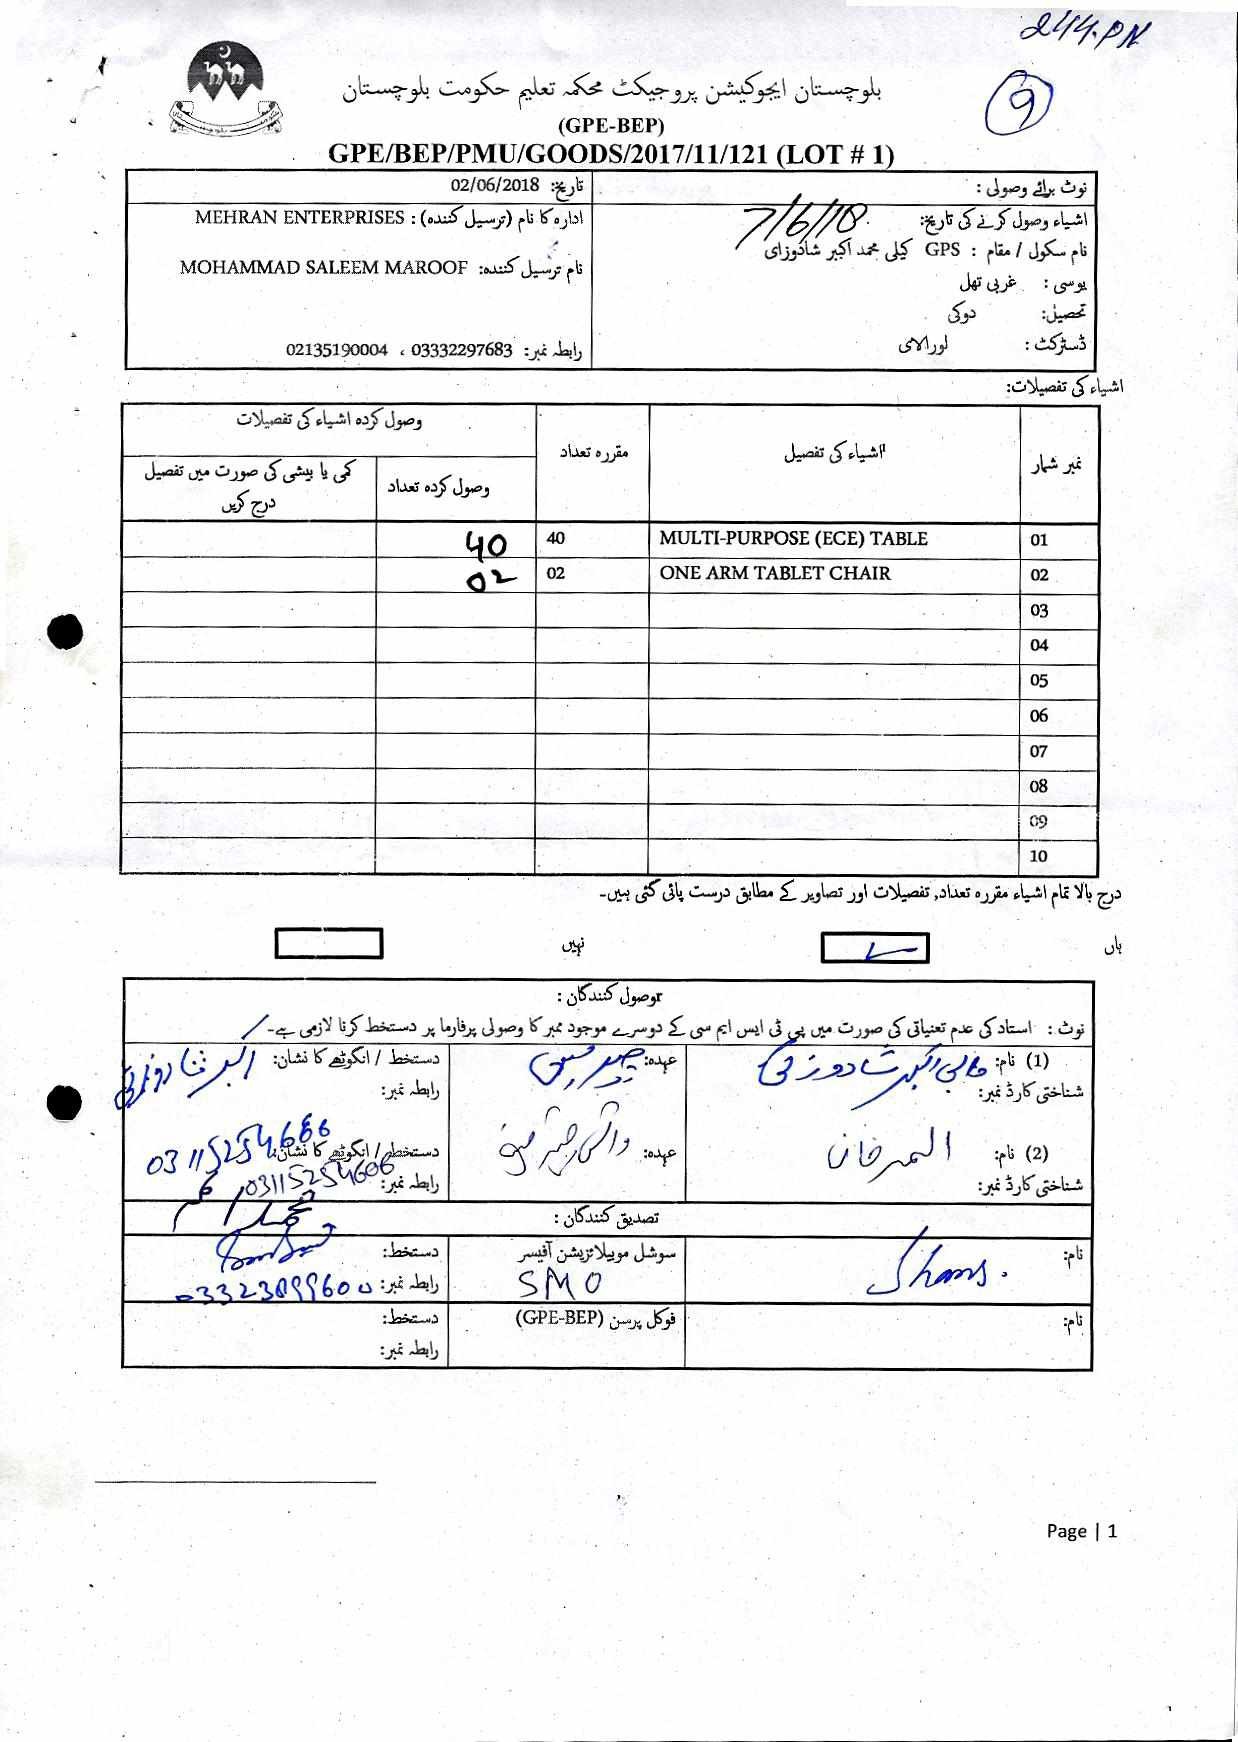 244.PN
9
بلوچستان ایجوکیشن پروجیکٹ محکمہ تعلیم حکومت بلوچستان
(GPE-BEP)
GPE/BEP/PMU/GOODS/2017/11/121 (LOT # 1)
نوٹ برائے وصولی :
تاریخ: 02/06/2018
اشیاء وصول کرنے کی تاریخ: 7/6/18
ادارہ کا نام (ترسیل کنندہ) : MEHRAN ENTERPRISES
نام سکول / مقام : GPS کیلی محمد اکبر شادوزای
نام ترسیل کنندہ: MOHAMMAD SALEEM MAROOF
یوسی : غربی تھل
تحصیل: دوکی
ڈسٹرکٹ : لورالای
رابطہ نمبر: 03332297683 ، 02135190004
اشیاء کی تفصیلات:
نمبر شمار اشیاء کی تفصیل مقررہ تعداد وصول کردہ اشیاء کی تفصیلات
وصول کردہ تعداد کمی یا بیشی کی صورت میں تفصیل درج کریں
01 MULTI-PURPOSE (ECE) TABLE 40 40
02 ONE ARM TABLET CHAIR 02 02
03
04
05
06
07
08
09
10
درج بالا تمام اشیاء مقررہ تعداد, تفصیلات اور تصاویر کے مطابق درست پائی گئی ہیں۔
ہاں نہیں
وصول کنندگان :
نوٹ : استاد کی عدم تعنیاتی کی صورت میں پی ٹی ایس ایم سی کے دوسرے موجود ممبر کا وصولی پرفارما پر دستخط کرنا لازمی ہے۔
(1) نام: اکبر شادوزئی عہدہ: دستخط / انگوٹھے کا نشان: اکبر شادوزئی
شناختی کارڈ نمبر: رابطہ نمبر:
03115254666
(2) نام: المر خان عہدہ: دستخط / انگوٹھے کا نشان:
شناختی کارڈ نمبر: رابطہ نمبر: 03115254606
تصدیق کنندگان :
نام: Shams. سوشل موبیلائزیشن آفیسر دستخط:
SMO رابطہ نمبر: 03323899600
نام: فوکل پرسن (GPE-BEP) دستخط:
رابطہ نمبر:
Page | 1